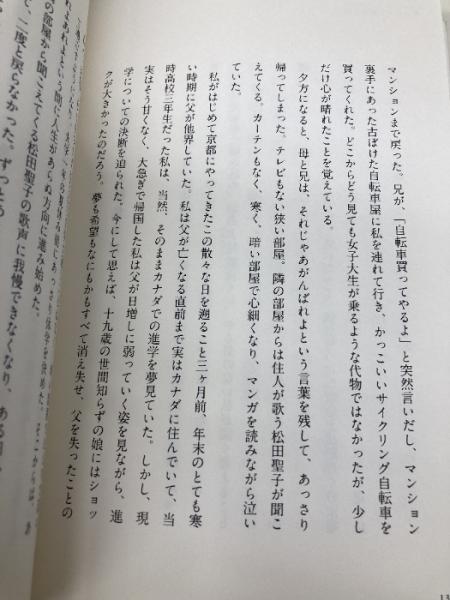 マンションまで戻った。兄が、「自転車買ってやるよ」と突然言いだし、マンション
裏手にあった古ぼけた自転車屋に私を連れて行き、かっこいいサイクリング自転車を
買ってくれた。どこからどう見ても女子大生が乗るような代物ではなかったが、少し
だけ心が晴れたことを覚えている。
夕方になると、母と兄は、それじゃあがんばれよという言葉を残して、あっさり
帰ってしまった。テレビもない狭い部屋。隣の部屋からは住人が歌う松田聖子が聞こ
えてくる。カーテンもなく、寒く、暗い部屋で心細くなり、マンガを読みながら泣い
ていた。
私がはじめて京都にやってきたこの散々な日を遡ること三ヶ月前、年末のとても寒
い時期に父が他界していた。私は父が亡くなる直前まで実はカナダに住んでいて、当
時高校三年生だった私は、当然、そのままカナダでの進学を夢見ていた。しかし、現
実はそう甘くなく、大急ぎで帰国した私は父が日増しに弱っていく姿を見ながら、進
学についての決断を迫られた。今にして思えば、十九歳の世間知らずの娘にはショッ
クが大きかったのだろう。夢も希望もなにもかもすべて消え失せ、父を失ったことの
よあれよという間に人生があらぬ方向に進み始めた。
の部屋から聞こえてくる松田聖子の歌声に我慢できなくなり、ある日
、二度と戻らなかった。
13